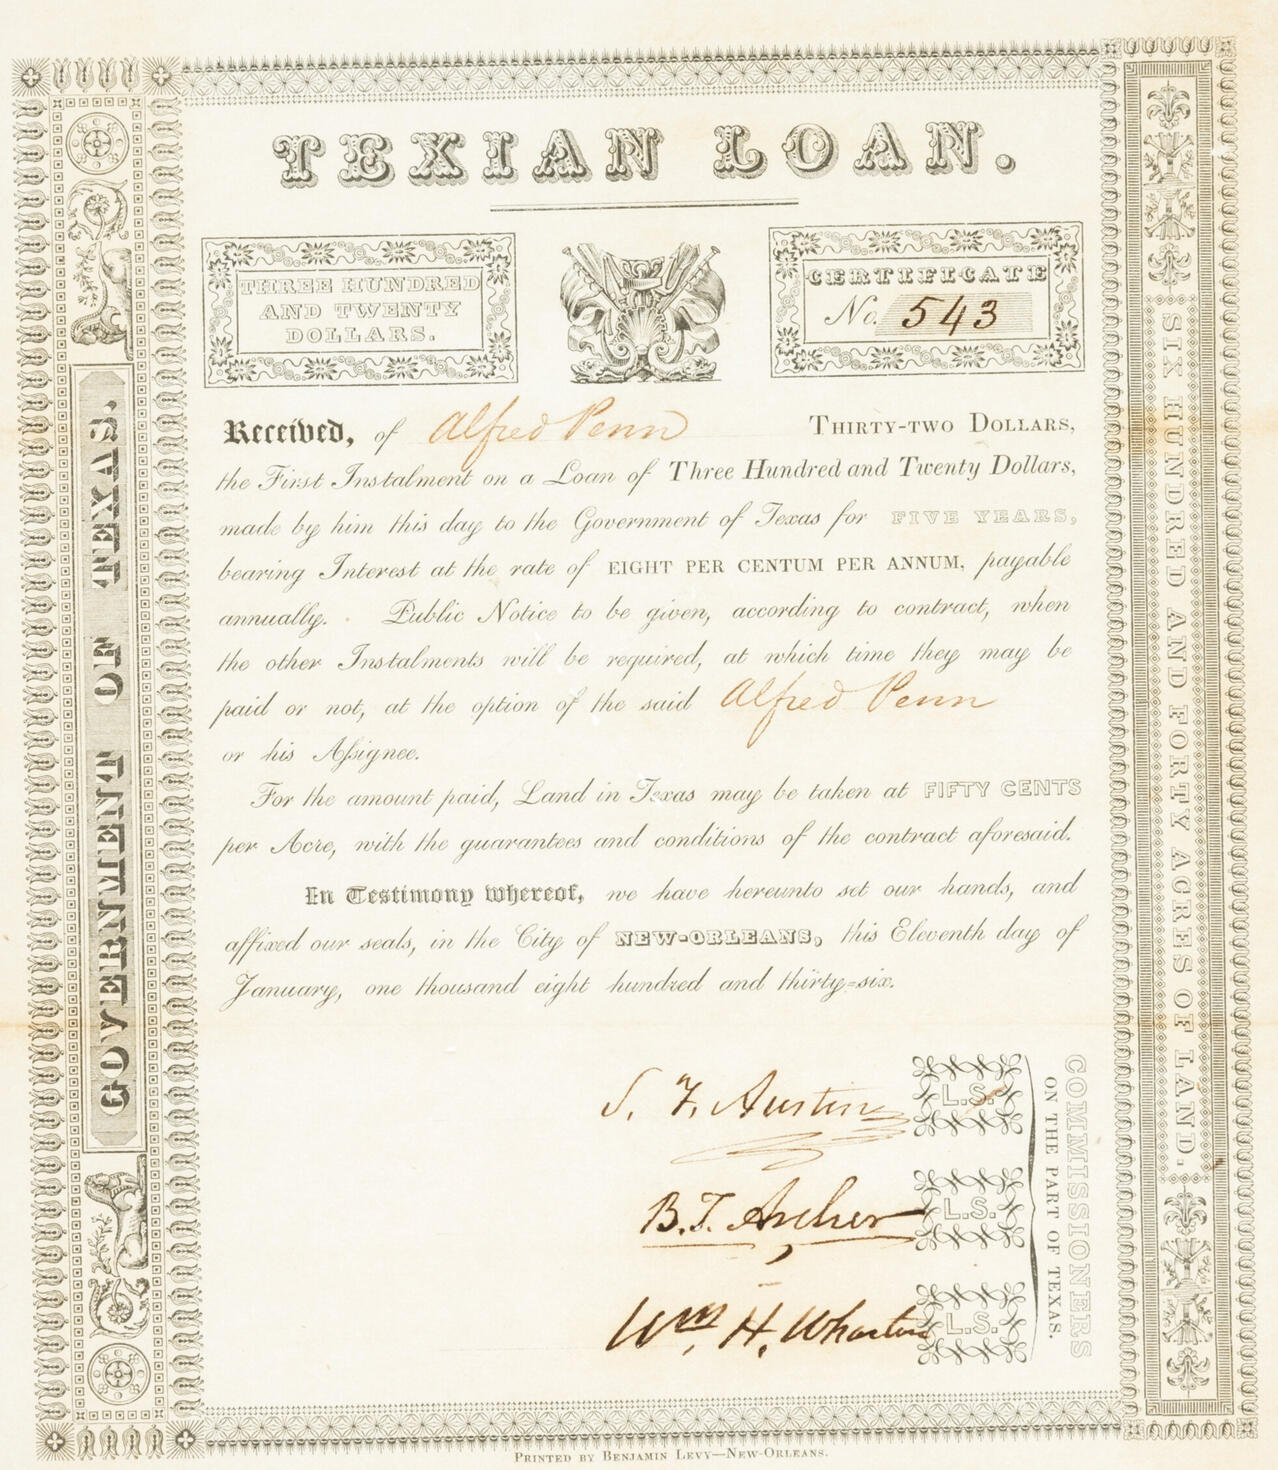 TEXIAN LOAN.
THREE HUNDRED
AND TWENTY
DOLLARS.
CERTIFICATE
No. 543
Received, of Alfred Penn THIRTY-TWO DOLLARS,
the First Instalment on a Loan of Three Hundred and Twenty Dollars,
made by him this day to the Government of Texas for FIVE YEARS,
bearing Interest at the rate of EIGHT PER CENTUM PER ANNUM, payable
annually. Public Notice to be given, according to contract, when
the other Instalments will be required, at which time they may be
paid or not, at the option of the said Alfred Penn
or his Assignee.
For the amount paid, Land in Texas may be taken at FIFTY CENTS
per Acre, with the guarantees and conditions of the contract aforesaid.
In Testimony whereof, we have hereunto set our hands, and
affixed our seals, in the City of NEW-ORLEANS, this Eleventh day of
January, one thousand eight hundred and thirty-six.
S. F. Austin L.S.
B. T. Archer L.S.
Wm. H. Wharton L.S.
COMMISSIONERS
ON THE PART OF TEXAS.
GOVERNMENT OF TEXAS.
SIX HUNDRED AND FORTY ACRES OF LAND.
PRINTED BY BENJAMIN LEVY—NEW-ORLEANS.